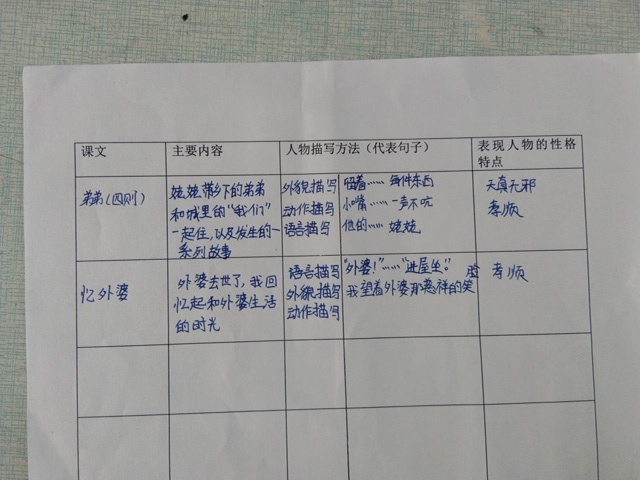 课文
主要内容
人物描写方法（代表句子）
表现人物的性格
特点
弟弟（四则）
姥姥带乡下的弟弟
和城里的“我们”
一起住，以及发生的一
系列故事
外貌描写
动作描写
语言描写
……每件东西
小嘴……一声不吭
他的……姥姥
天真无邪
孝顺
忆外婆
外婆去世了，我回
忆起和外婆生活
的时光
语言描写
外貌描写
动作描写
“外婆！”……“进屋坐。”
我望着外婆那慈祥的笑脸
孝顺